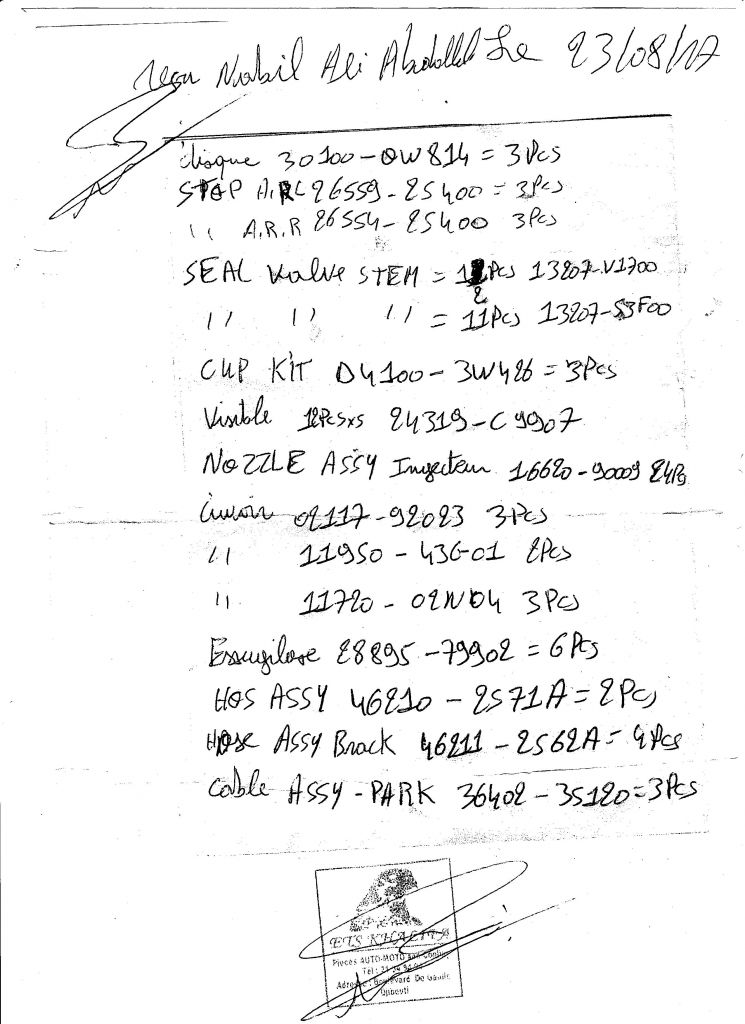 Nabil Ali Abdallah Le 23/08/17
disque 30100-0W814 = 3Pcs
STOP A.R.L 26559-25400 = 3Pcs
" A.R.R 26554-25400 3Pcs
SEAL Valve STEM = 12Pcs 13207-V1700
2
" " " = 11Pcs 13207-53F00
CUP KIT D4100-3W486 = 3Pcs
12Pcsxs 24319-C9907
NOZZLE ASSY Injecteur 16620-90009 24Ps
02117-92023 3Pcs
" 11950-43G01 2Pcs
" 11720-02N04 3Pcs
28895-79902 = 6Pcs
HOS ASSY 46210-2571A = 2Pcs
Hose Assy Brack 46211-2562A = 4Pcs
Cable ASSY-PARK 36402-35120 = 3Pcs
ETS KHALIFA
Pieces AUTO-MOTO
Tel: 
Adresse: Boulevard De Gaulle
Djibouti